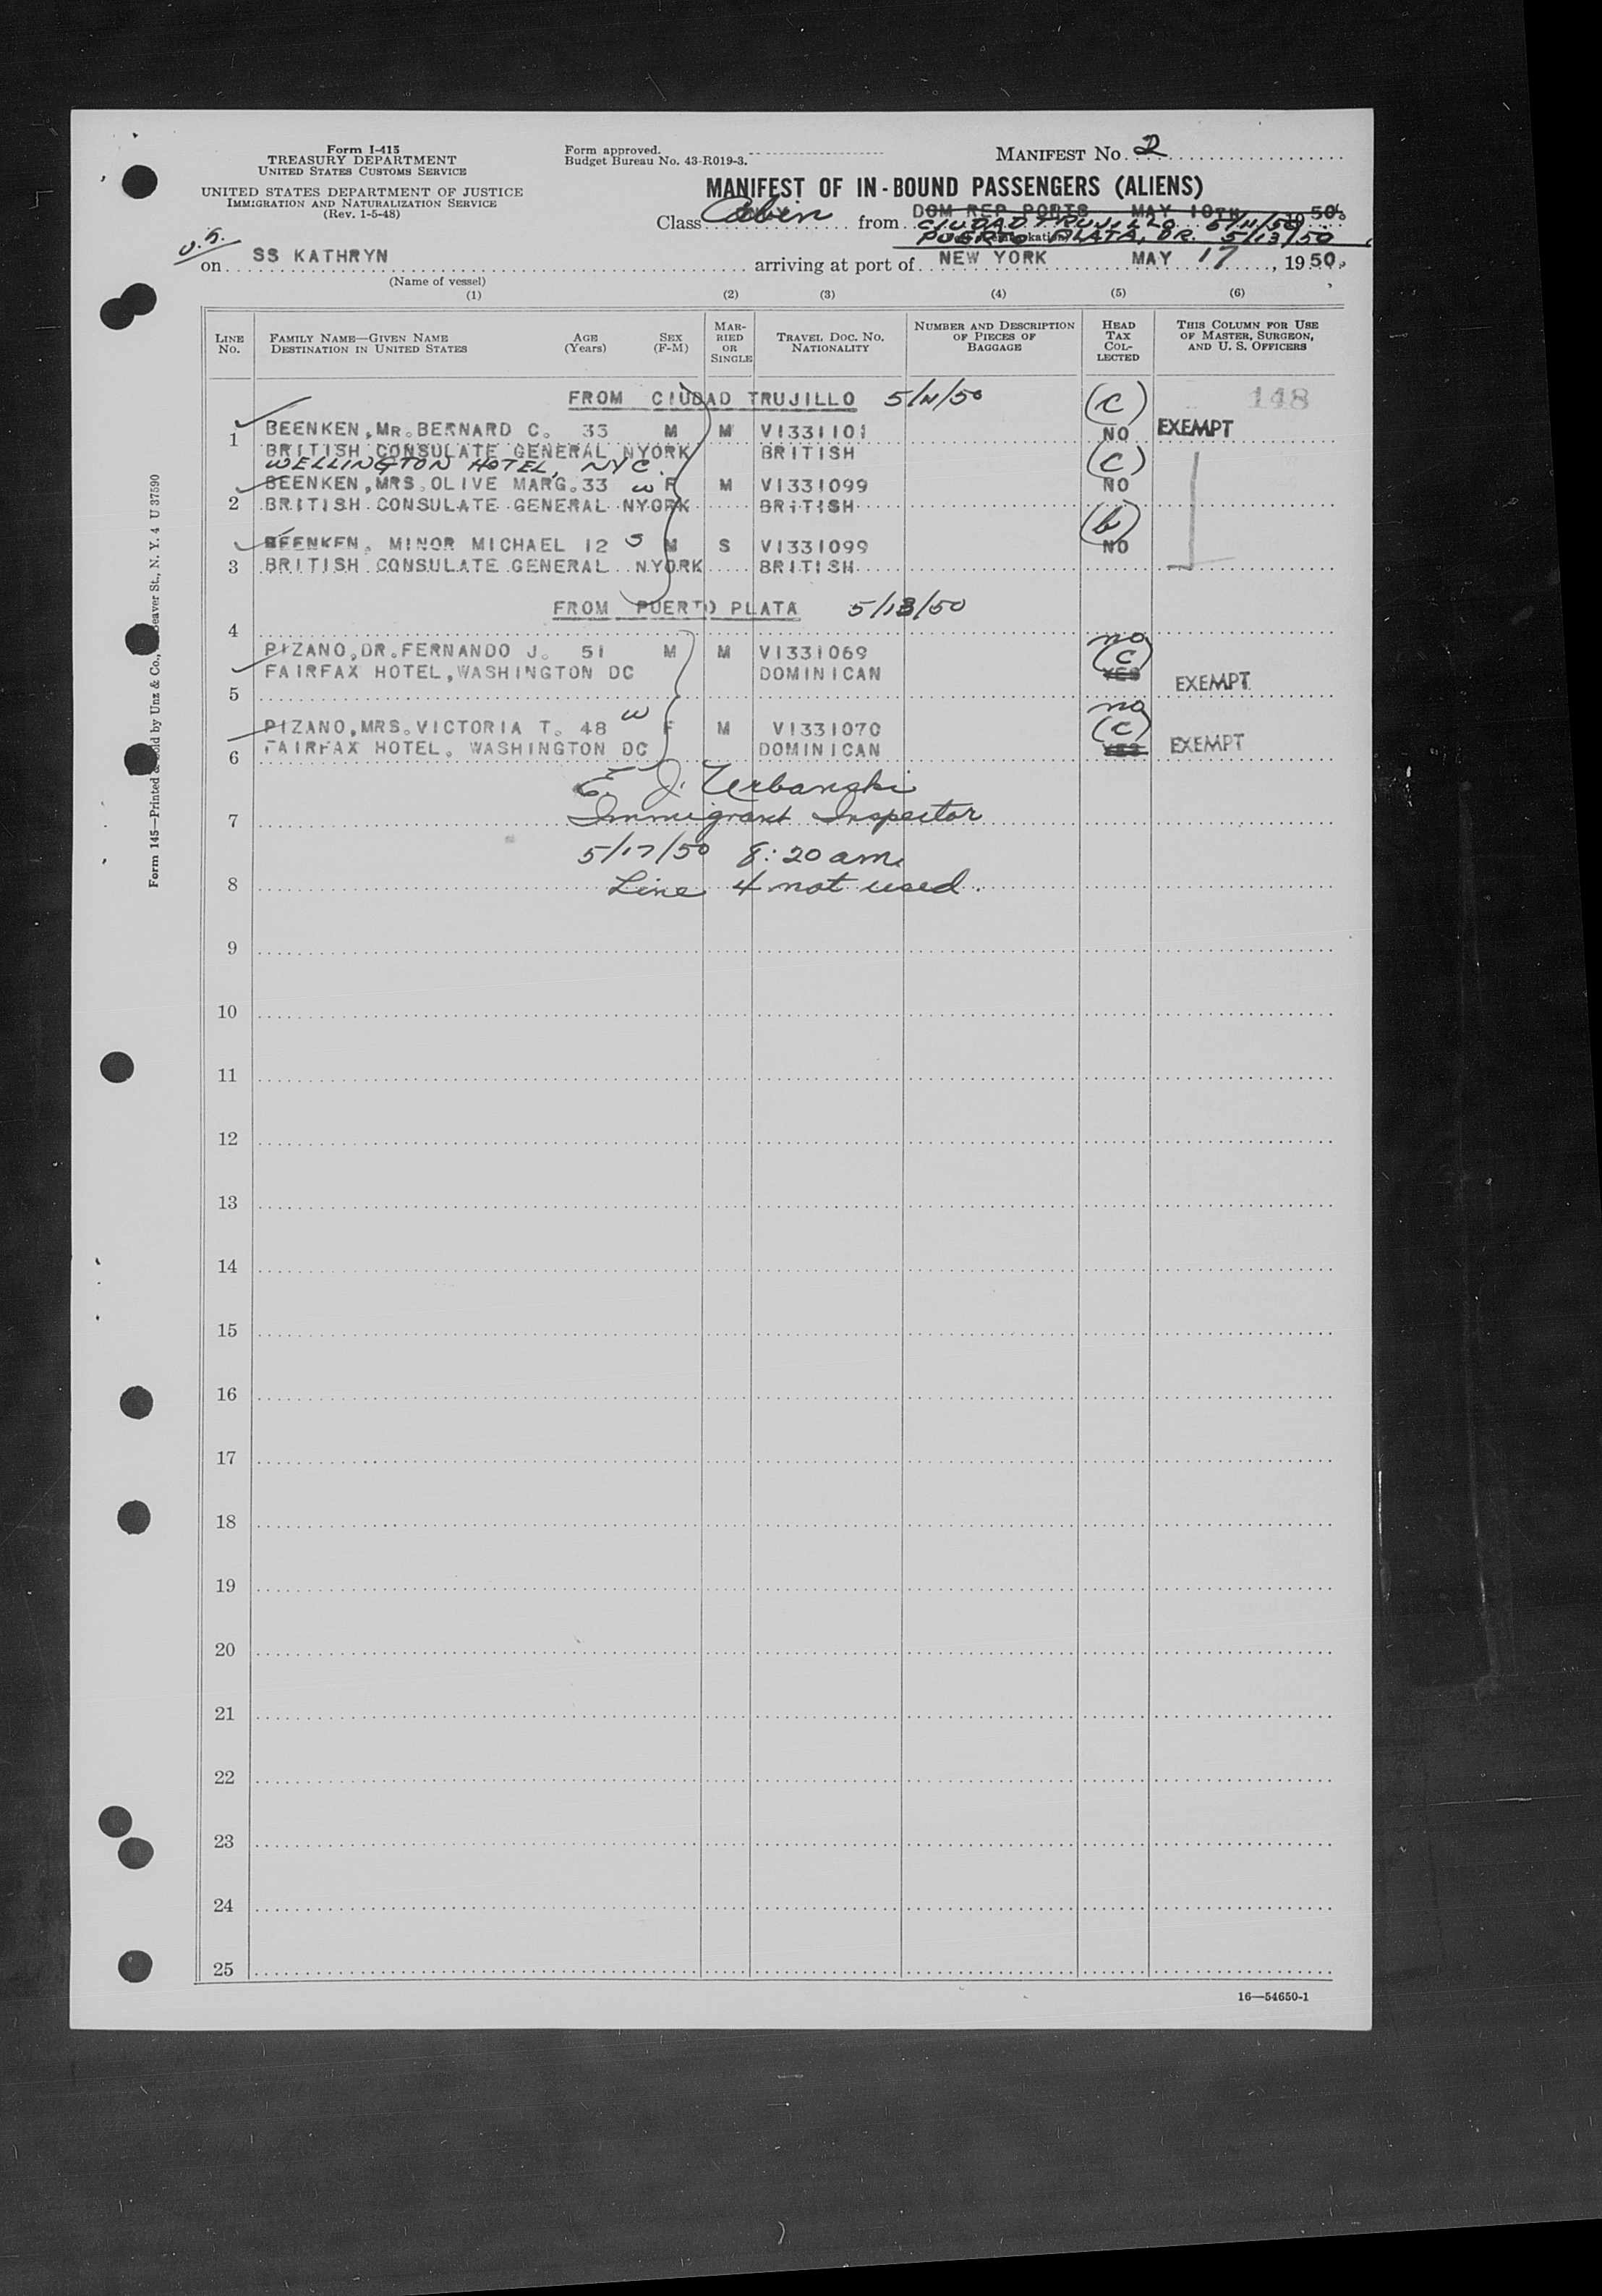 Form I-415
TREASURY DEPARTMENT
UNITED STATES CUSTOMS SERVICE
UNITED STATES DEPARTMENT OF JUSTICE
IMMIGRATION AND NATURALIZATION SERVICE
(Rev. 1-5-48)
Form approved.
Budget Bureau No. 43-R019-3.
MANIFEST No. 2
MANIFEST OF IN-BOUND PASSENGERS (ALIENS)
Class Cabin from DOM REP PORTS MAY 10TH 1950.
CIUDAD TRUJILLO 5/11/50
PUERTO PLATA, DR. 5/13/50
on SS KATHRYN arriving at port of NEW YORK MAY 17, 1950.
(Name of vessel)
(1) (2) (3) (4) (5) (6)
LINE No. FAMILY NAME—GIVEN NAME DESTINATION IN UNITED STATES AGE (Years) SEX (F-M) MARRIED OR SINGLE TRAVEL DOC. NO. NATIONALITY NUMBER AND DESCRIPTION OF PIECES OF BAGGAGE HEAD TAX COLLECTED THIS COLUMN FOR USE OF MASTER, SURGEON, AND U. S. OFFICERS
FROM CIUDAD TRUJILLO 5/11/50 (c) 148
1 BEENKEN, MR. BERNARD C. 33 M M V1331101 NO EXEMPT
BRITISH CONSULATE GENERAL NYORK BRITISH
WELLINGTON HOTEL, NYC. (c)
BEENKEN, MRS. OLIVE MARG. 33 w F M V1331099 NO
2 BRITISH CONSULATE GENERAL NYORK BRITISH
(b)
BEENKEN, MINOR MICHAEL 12 S M S V1331099 NO
3 BRITISH CONSULATE GENERAL NYORK BRITISH
FROM PUERTO PLATA 5/13/50
4
no
PIZANO, DR. FERNANDO J. 51 M M V1331069 (c)
FAIRFAX HOTEL, WASHINGTON DC DOMINICAN YES EXEMPT
5
no
PIZANO, MRS. VICTORIA T. 48 w F M V1331070 (c)
FAIRFAX HOTEL. WASHINGTON DC DOMINICAN YES EXEMPT
6
E. J. Urbanski
7 Immigrant Inspector
5/17/50 8:20 am
8 Line 4 not used.
9
10
11
12
13
14
15
16
17
18
19
20
21
22
23
24
25
16—54650-1